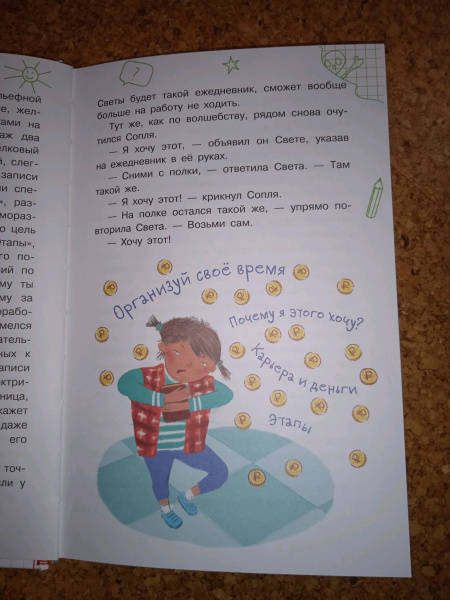 ьефной
е, жел-
ами на
аж два
ёлковый
й, слег-
записи
ии спе-
», раз-
мораз-
о цель
тапы»,
го по-
ний по
му ты
му за
орабо-
мелся
атель-
ных к
записи
ектри-
ница,
кажет
даже
его
точ-
сли у
?
Светы будет такой ежедневник, сможет вообще
больше на работу не ходить.
Тут же, как по волшебству, рядом снова очу-
тился Сопля.
— Я хочу этот, — объявил он Свете, указав
на ежедневник в её руках.
— Сними с полки, — ответила Света. — Там
такой же.
— Я хочу этот! — крикнул Сопля.
— На полке остался такой же, — упрямо по-
вторила Света. — Возьми сам.
— Хочу этот!
Организуй своё время
Почему я этого хочу?
Карьера и деньги
Этапы